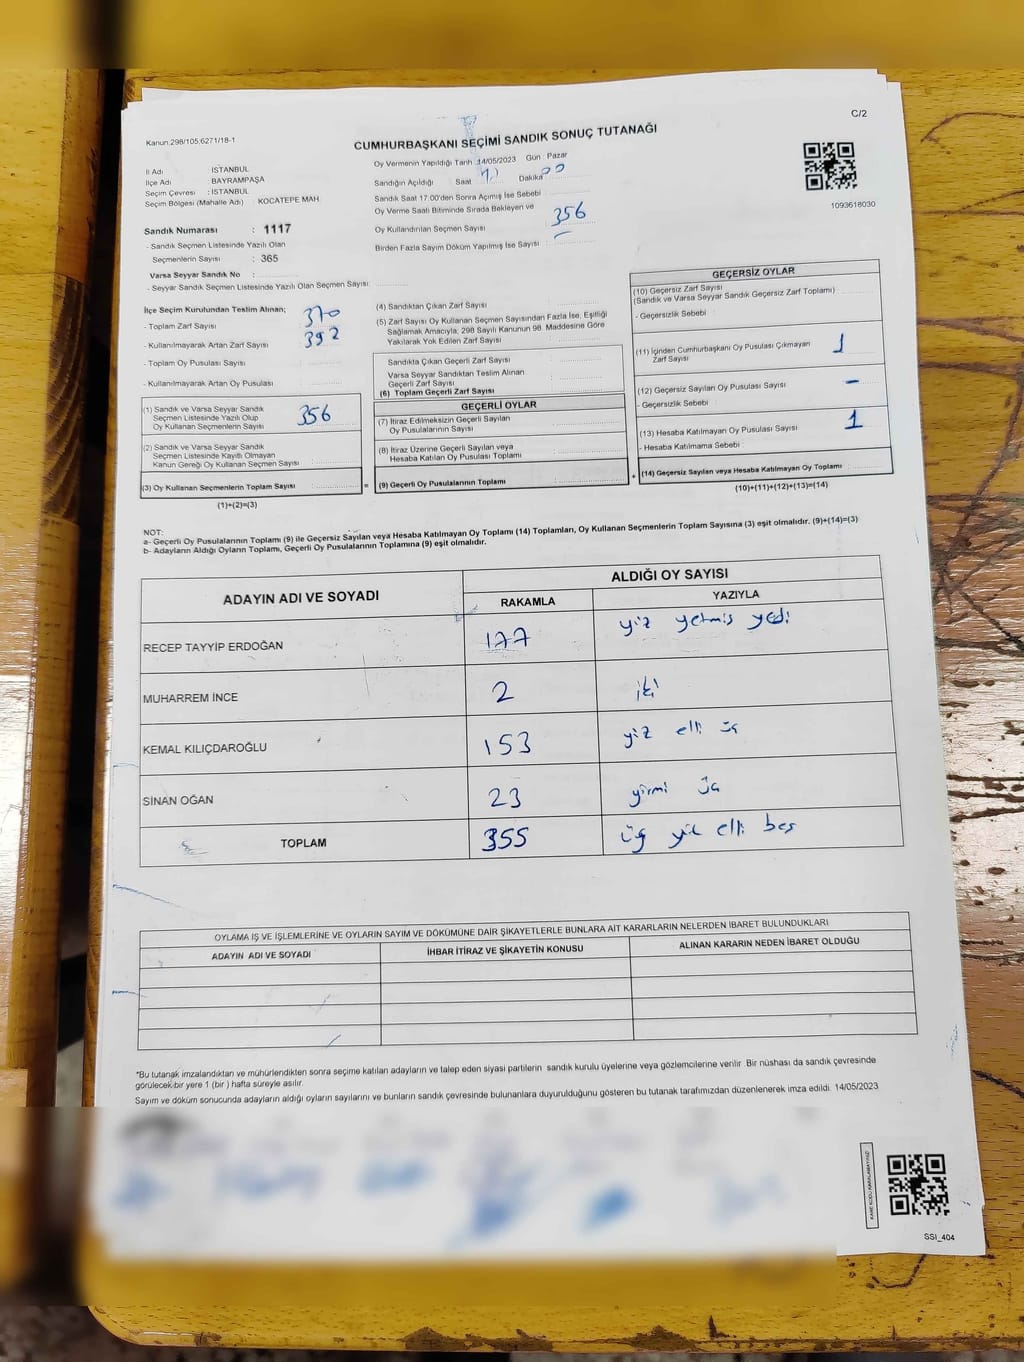 C/2
Kanun;298/105;6271/18-1
CUMHURBAŞKANI SEÇİMİ SANDIK SONUÇ TUTANAĞI
İl Adı İSTANBUL
İlçe Adı BAYRAMPAŞA
Seçim Çevresi : İSTANBUL
Seçim Bölgesi (Mahalle Adı) : KOCATEPE MAH.
Sandık Numarası : 1117
- Sandık Seçmen Listesinde Yazılı Olan
Seçmenlerin Sayısı : 365
Varsa Seyyar Sandık No :
- Seyyar Sandık Seçmen Listesinde Yazılı Olan Seçmen Sayısı:
Oy Vermenin Yapıldığı Tarih :14/05/2023 Gün : Pazar
Sandığın Açıldığı Saat Dakika 00
Sandık Saat 17:00'den Sonra Açımış İse Sebebi
Oy Verme Saati Bitiminde Sırada Bekleyen ve
Oy Kullandırılan Seçmen Sayısı 356
Birden Fazla Sayım Döküm Yapılmış İse Sayısı : -
1093618030
İlçe Seçim Kurulundan Teslim Alınan;
- Toplam Zarf Sayısı : 370
- Kullanılmayarak Artan Zarf Sayısı : 392
- Toplam Oy Pusulası Sayısı :
- Kullanılmayarak Artan Oy Pusulası :
(1) Sandık ve Varsa Seyyar Sandık
Seçmen Listesinde Yazılı Olup
Oy Kullanan Seçmenlerin Sayısı 356
(2) Sandık ve Varsa Seyyar Sandık
Seçmen Listesinde Kayıtlı Olmayan
Kanun Gereği Oy Kullanan Seçmen Sayısı :
(3) Oy Kullanan Seçmenlerin Toplam Sayısı :
(1)+(2)=(3)
(4) Sandıktan Çıkan Zarf Sayısı :
(5) Zarf Sayısı Oy Kullanan Seçmen Sayısından Fazla İse, Eşitliği
Sağlamak Amacıyla; 298 Sayılı Kanunun 98. Maddesine Göre
Yakılarak Yok Edilen Zarf Sayısı :
Sandıkta Çıkan Geçerli Zarf Sayısı :
Varsa Seyyar Sandıktan Teslim Alınan
Geçerli Zarf Sayısı :
(6) Toplam Geçerli Zarf Sayısı :
GEÇERLİ OYLAR
(7) İtiraz Edilmeksizin Geçerli Sayılan
Oy Pusulalarının Sayısı :
(8) İtiraz Üzerine Geçerli Sayılan veya
Hesaba Katılan Oy Pusulası Toplamı :
= (9) Geçerli Oy Pusulalarının Toplamı :
GEÇERSİZ OYLAR
(10) Geçersiz Zarf Sayısı
(Sandık ve Varsa Seyyar Sandık Geçersiz Zarf Toplamı) :
- Geçersizlik Sebebi :
(11) İçinden Cumhurbaşkanı Oy Pusulası Çıkmayan
Zarf Sayısı : 1
(12) Geçersiz Sayılan Oy Pusulası Sayısı : -
- Geçersizlik Sebebi :
(13) Hesaba Katılmayan Oy Pusulası Sayısı : 1
- Hesaba Katılmama Sebebi :
+ (14) Geçersiz Sayılan veya Hesaba Katılmayan Oy Toplamı :
(10)+(11)+(12)+(13)=(14)
NOT:
a- Geçerli Oy Pusulalarının Toplamı (9) ile Geçersiz Sayılan veya Hesaba Katılmayan Oy Toplamı (14) Toplamları, Oy Kullanan Seçmenlerin Toplam Sayısına (3) eşit olmalıdır. (9)+(14)=(3)
b- Adayların Aldığı Oyların Toplamı, Geçerli Oy Pusulalarının Toplamına (9) eşit olmalıdır.
ADAYIN ADI VE SOYADI ALDIĞI OY SAYISI
RAKAMLA YAZIYLA
RECEP TAYYİP ERDOĞAN 177 yüz yetmiş yedi
MUHARREM İNCE 2 iki
KEMAL KILIÇDAROĞLU 153 yüz elli üç
SİNAN OĞAN 23 yirmi üç
TOPLAM 355 üç yüz elli beş
OYLAMA İŞ VE İŞLEMLERİNE VE OYLARIN SAYIM VE DÖKÜMÜNE DAİR ŞİKAYETLERLE BUNLARA AİT KARARLARIN NELERDEN İBARET BULUNDUKLARI
ADAYIN ADI VE SOYADI İHBAR İTİRAZ VE ŞİKAYETİN KONUSU ALINAN KARARIN NEDEN İBARET OLDUĞU
*Bu tutanak imzalandıktan ve mühürlendikten sonra seçime katılan adayların ve talep eden siyasi partilerin sandık kurulu üyelerine veya gözlemcilerine verilir. Bir nüshası da sandık çevresinde
görülecek bir yere 1 (bir) hafta süreyle asılır.
Sayım ve döküm sonucunda adayların aldığı oyların sayılarını ve bunların sandık çevresinde bulunanlara duyurulduğunu gösteren bu tutanak tarafımızdan düzenlenerek imza edildi. 14/05/2023
KARE KODU KARALAMAYINIZ!
SSI_404